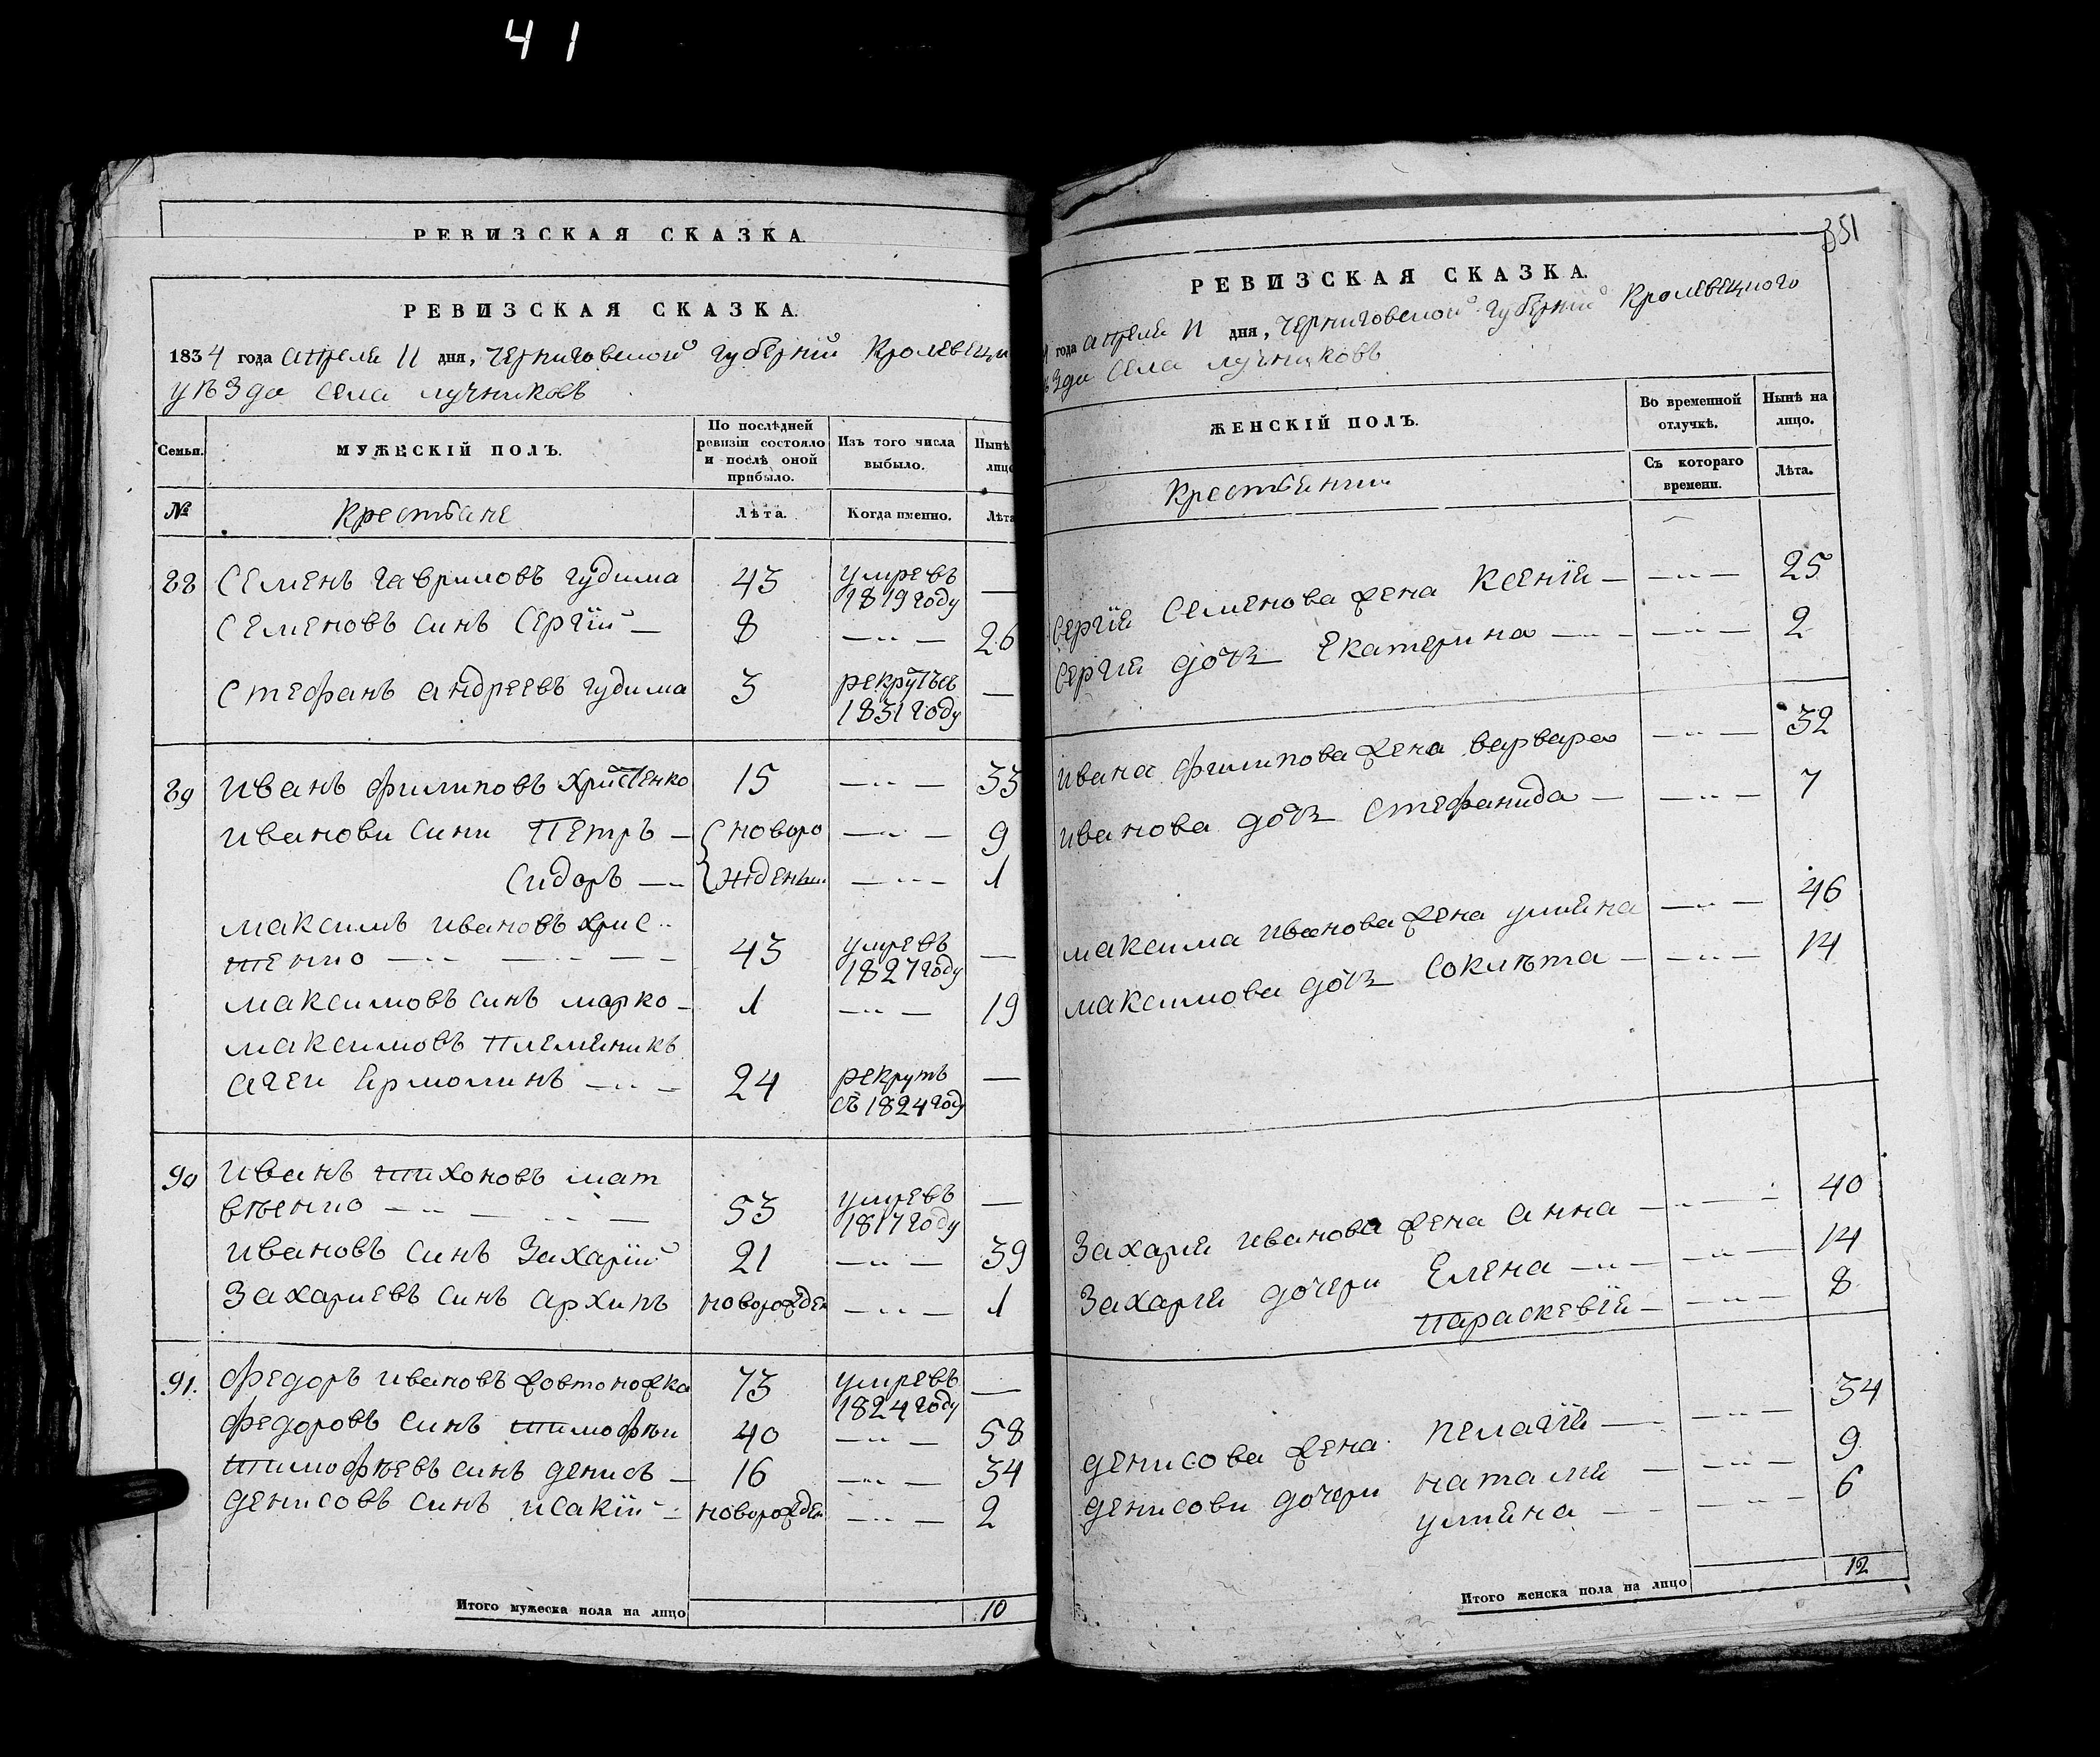 41
РЕВИЗСКАЯ СКАЗКА.
РЕВИЗСКАЯ СКАЗКА.
1834 года апреля 11 дня, Черниговской губернїи Кролевецк
уѣзда села лучниковъ
Семьи.
МУЖЕСКІЙ ПОЛЪ.
По послѣдней ревизіи состояло и послѣ оной прибыло.
Изъ того числа выбыло.
Нынѣ лицо
№
Крестьяне
Лѣта.
Когда именно.
Лѣта
88 Семенъ гавриловъ гудима 43 умревъ 1819 году —
Семеновъ синъ Сергїй — 8 — 〃 — 26
Стефанъ андреевъ гудима 3 рекрутъ 1831 году —
89 иванъ филиповъ христенко 15 — 〃 — 33
иванови сини Петръ — новоро — 〃 — 9
Сидоръ — жденни — 〃 — 1
максимъ ивановъ хрис
тенко — 43 умревъ 1827 году —
максимовъ синъ марко — 1 — 〃 — 19
максимовъ племяникъ
агеи Ермолинъ — 24 рекрутъ съ 1824 году —
90 иванъ тихоновъ мат
вѣенко — 53 умревъ 1817 году —
ивановъ синъ Захарїй 21 — 〃 — 39
Захариевъ синъ архипъ новорожден — 〃 — 1
91. федоръ ивановъ жовтоножка 73 умревъ 1824 году —
федоровъ синъ тимофѣи 40 — 〃 — 58
тимофѣевъ синъ денисъ — 16 — 〃 — 34
денисовъ синъ исакїй — новорожден — 〃 — 2
Итого мужеска пола на лицо 10
351
РЕВИЗСКАЯ СКАЗКА.
4 года апреля 11 дня, Черниговской губернїи Кролевецкого
ѣзда села лучниковъ
ЖЕНСКІЙ ПОЛЪ.
Во временной отлучкѣ.
Нынѣ на лицо.
Крестьянки
Съ котораго времени.
Лѣта.
Сергїя Семенова жена Ксенїя — — 〃 — 25
Сергїя дочь Екатерина — — 〃 — 2
ивана филипова жена варвара — 〃 — 32
иванова дочь Стефанида — — 〃 — 7
максима иванова жена улияна — 〃 — 46
максимова дочь Соклѣта — — 〃 — 14
Захарїя иванова жена анна — — 〃 — 40
Захарїя дочери Елена — — 〃 — 14
Параскевїя — — 〃 — 8
денисова жена пелагїя — — 〃 — 34
денисови дочери наталия — — 〃 — 9
улияна — — 〃 — 6
Итого женска пола на лицо 12